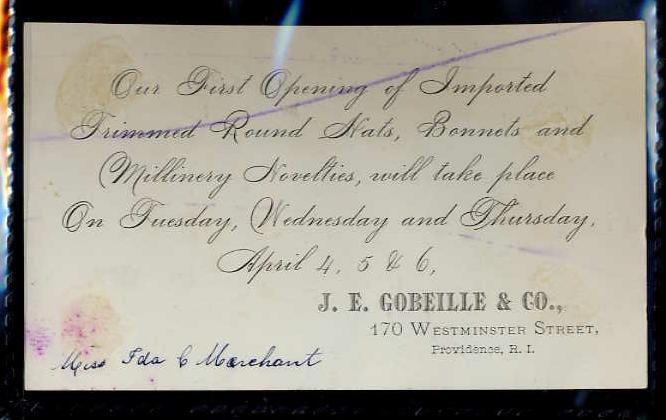 Our First Opening of Imported
Trimmed Round Hats, Bonnets and
Millinery Novelties, will take place
On Tuesday, Wednesday and Thursday,
April 4, 5 & 6,
J. E. GOBEILLE & CO.,
170 WESTMINSTER STREET,
Providence, R. I.
Miss Ida C Merchant